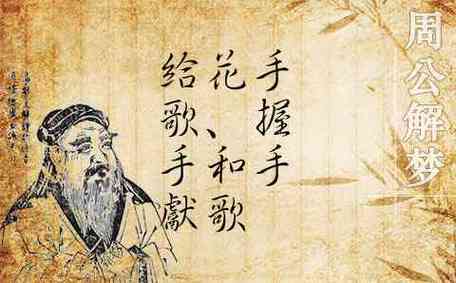 给歌手獻
花、和歌
手握手
周公解梦